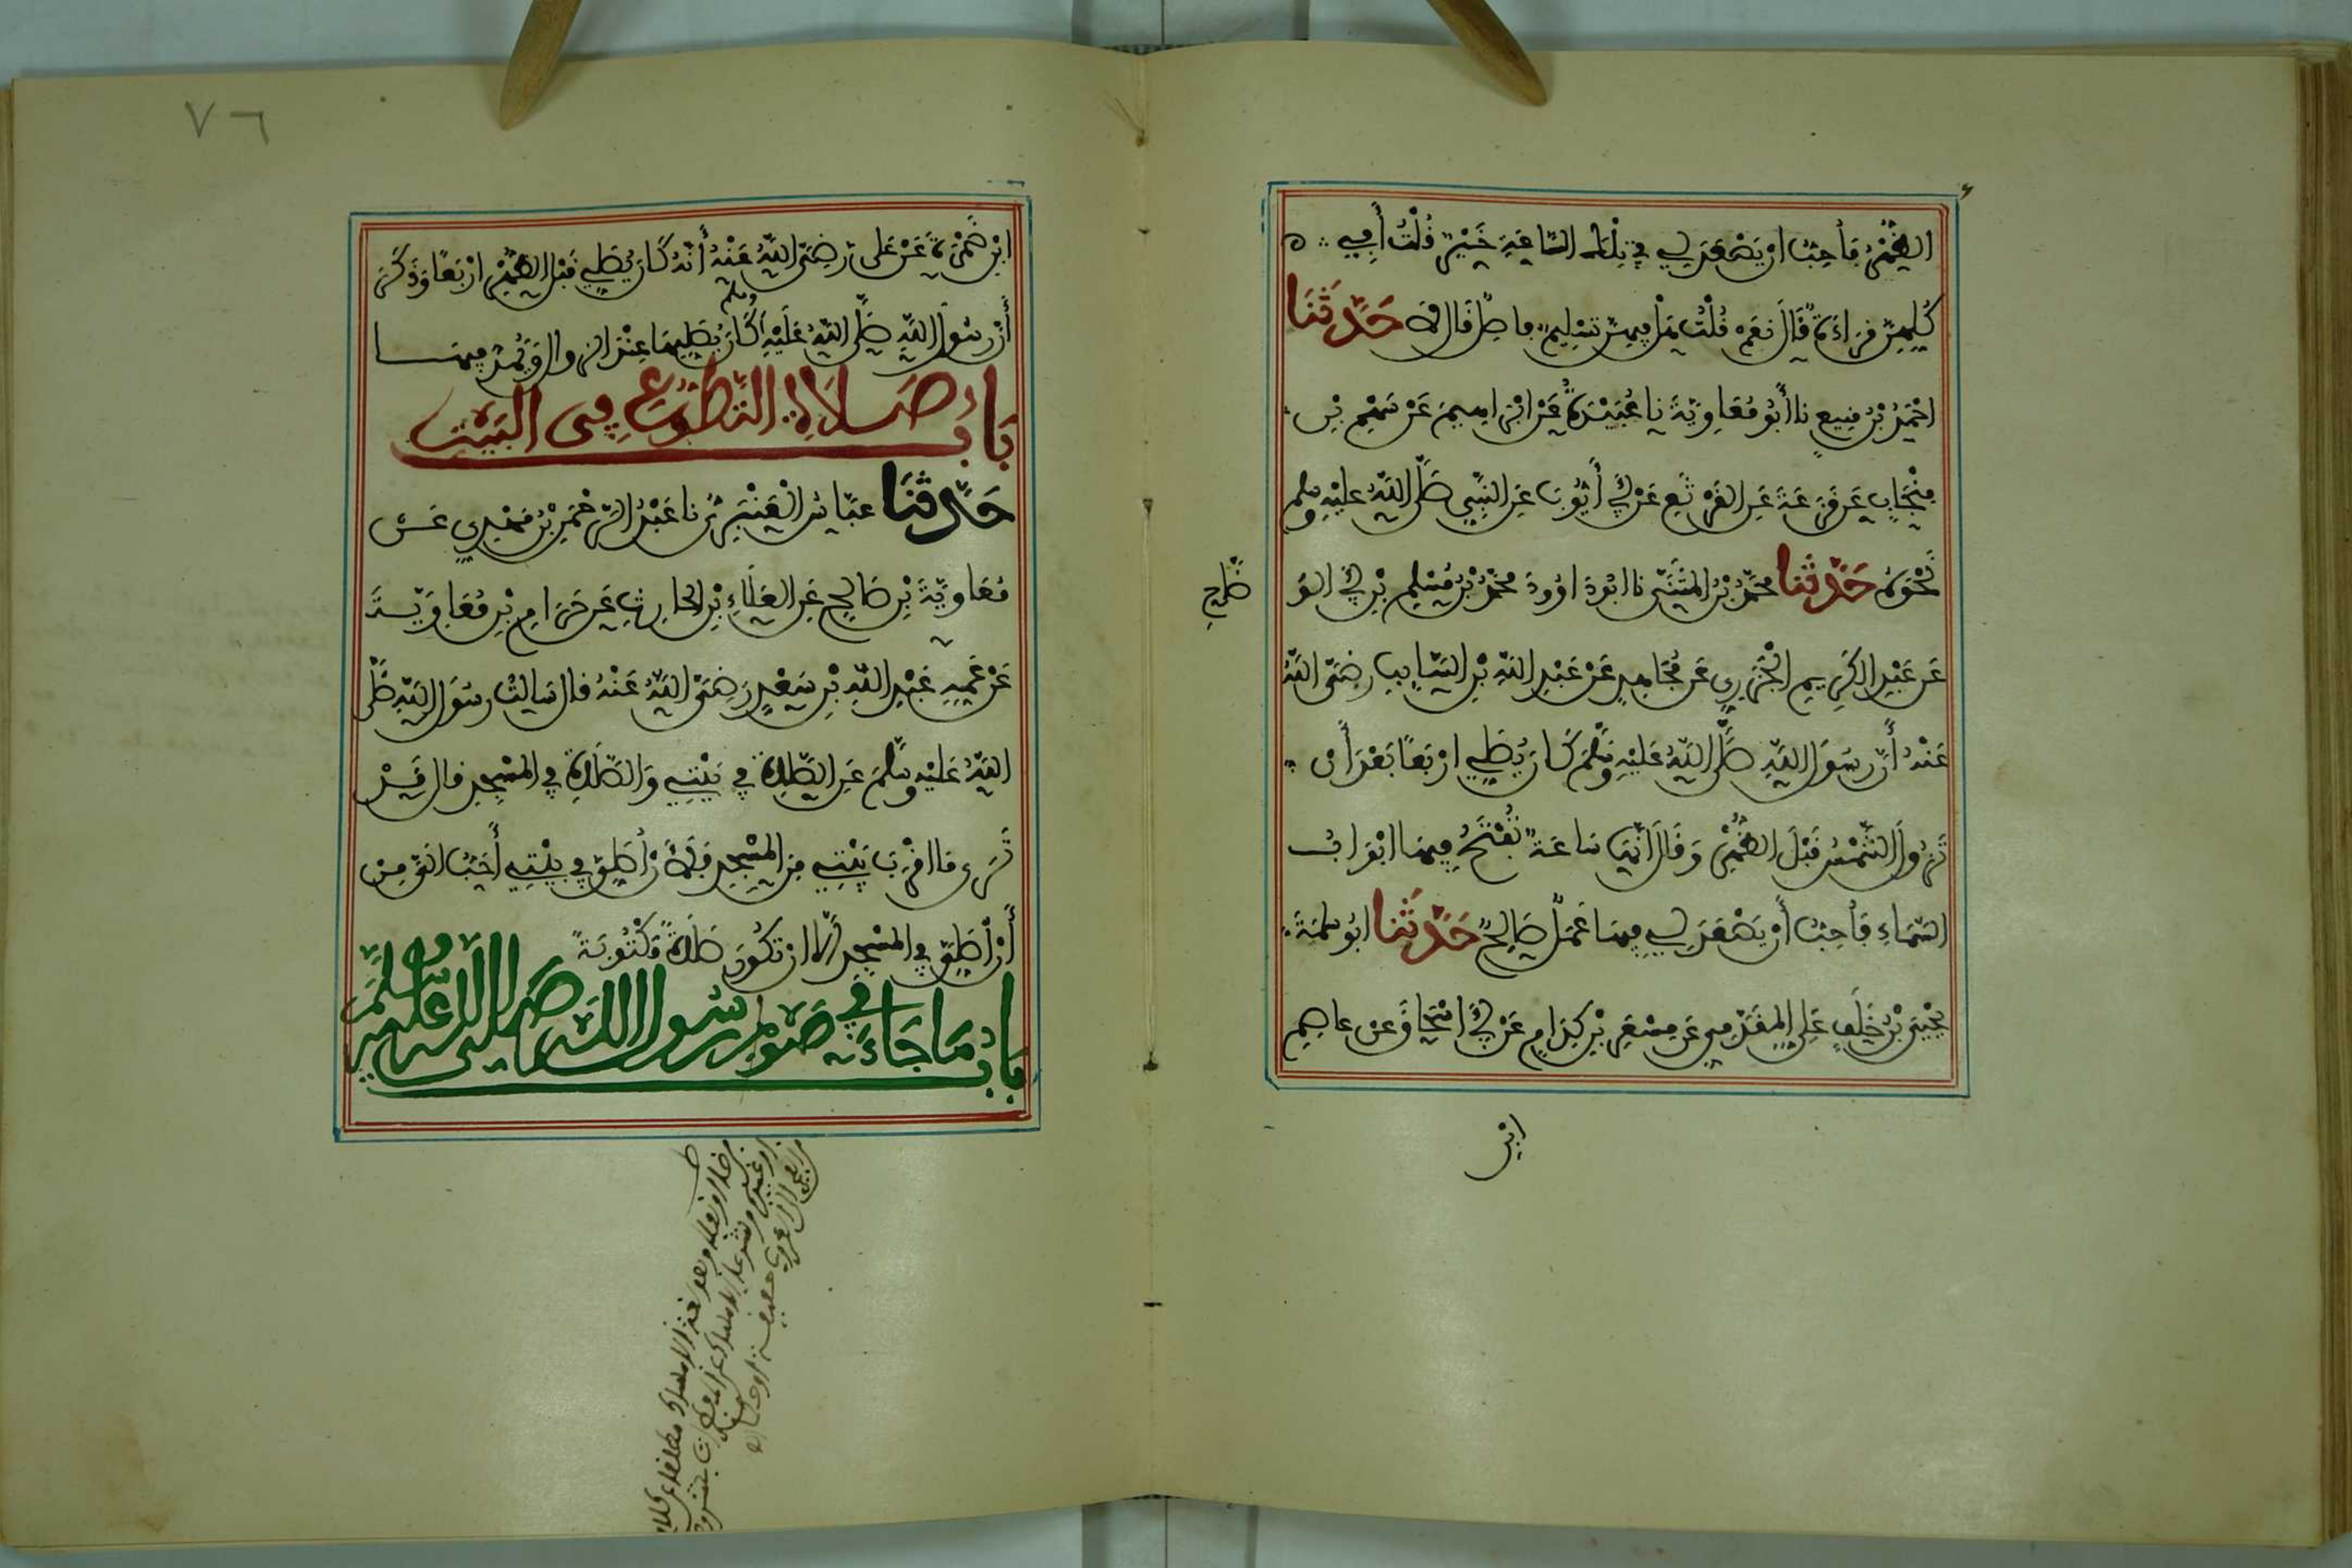 الظُّهْرُ فَأُحِبُّ أَنْ يَصْعَدَ لِي فِي تِلْكَ السَّاعَةِ خَيْرٌ قُلْتُ أَفِي
كُلِّهِنَّ قِرَاءَةٌ قَالَ نَعَمْ قُلْتُ هَلْ فِيهِنَّ تَسْلِيمٌ فاصل قال لا حَدَّثَنَا
أَحْمَدُ بْنُ مَنِيعٍ نا أَبُو مُعَاوِيَةَ نا عُبَيْدَةُ عَنْ إبْرَاهِيمَ عَنْ سَهْمِ بْنِ
مِنْجَابٍ عَنْ قَزَعَةَ عَنِ القَرْثَعِ عَنْ أَبِي أَيُّوبَ عَنِ النَّبِيِّ صَلَّى اللَّهُ عَلَيْهِ وسلم
نَحْوَهُ حَدَّثَنا محَمَّدُ بْنُ المُثَنَّى نا ابُو دَاوُودَ محَمَّدُ بْنُ مُسْلِمِ بْنِ أَبِي الوَ
ضَّاحِ
عَنْ عَبْدِ الكَرِيمِ الجَزَرِي عَنْ مُجَاهِدٍ عَنْ عَبْدِ اللَّهِ بْنِ السَّايِبِ رَضِيَ اللَّهُ
عَنْهُ أَنَّ رَسُولَ اللَّهِ صَلَّى اللَّهُ عَلَيْهِ وَسَلَّمَ كَانَ يُصَلِّي ارْبَعًا بَعْدَ أَنْ
تَزُولَ الشَّمْسُ قَبْلَ الظُّهْرِ وَقَالَ انَّهَا سَاعَةٌ تُفْتَحُ فِيهَا ابْوَابُ
السَّمَاءِ فَأُحِبُّ أَنْ يَصْعَدَ لِي فِيهَا عَمَلٌ صَالِحٌ حَدَّثَنا ابُو سلمَةَ
يَحْيَى بْنُ خَلَفٍ عَلِي المُقَدَّمِي عَن مِسْعَرِ بْنِ كِدَامٍ عَنْ أَبِي اسْحَاقَ عن عاصِمِ
ابْنِ
٧٦
ابْنِ ضَمْرَةَ عَنْ عَلِي رَضِيَ اللَّهُ عَنْهُ أَنَّهُ كَانَ يُصَلِّي قَبْلَ الظُّهْرِ ارْبَعًا وَذَكَرَ
أَنَّ رَسُولَ اللَّهِ صَلَّى اللَّهُ عَلَيْهِ وسلم كَانَ يُصَلِّيهَا عِنْدَ الزوال وَيَمُدُّ فِيهَا
بَابُ صَلَاةِ التَّطَوُّعِ فِي البَيْتِ
حَدَّثَنَا عَبَّاسٌ العَنْبَرِيُّ نا عَبْدُ الرَّحْمَنِ بْنُ مَهْدِي عَنْ
مُعَاوِيَةَ بْنِ صَالِحٍ عَنِ العَلَاءِ بْنِ الحَارِثِ عَنْ حَرَامِ بْنِ مُعَاوِيَةَ
عَنْ عَمِّهِ عَبْدِ اللَّهِ بْنِ سَعْدٍ رَضِيَ اللَّهُ عَنْهُ قال سَالْتُ رَسُولَ اللَّهِ صَلَّى
اللَّهُ عَلَيْهِ وَسَلَّمَ عَنِ الصَّلَاةِ فِي بَيْتِي وَالصَّلَاةِ فِي المَسْجِدِ قال قَدْ
تَرَى مَا اقْرَبَ بَيْتِي مِنَ المَسْجِدِ فَلَأَنْ أُصَلِّي فِي بَيْتِي أَحَبُّ الَيَّ مِنْ
أَنْ أُصَلِّي فِي المَسْجِدِ إلَّا انْ تَكُونَ صَلَاةً مَكْتُوبَةً
بَابُ مَا جَاءَ فِي صَوْمِ رَسُولِ اللَّهِ صَلَّى اللَّهُ عَلَيْهِ وَسَلَّمَ